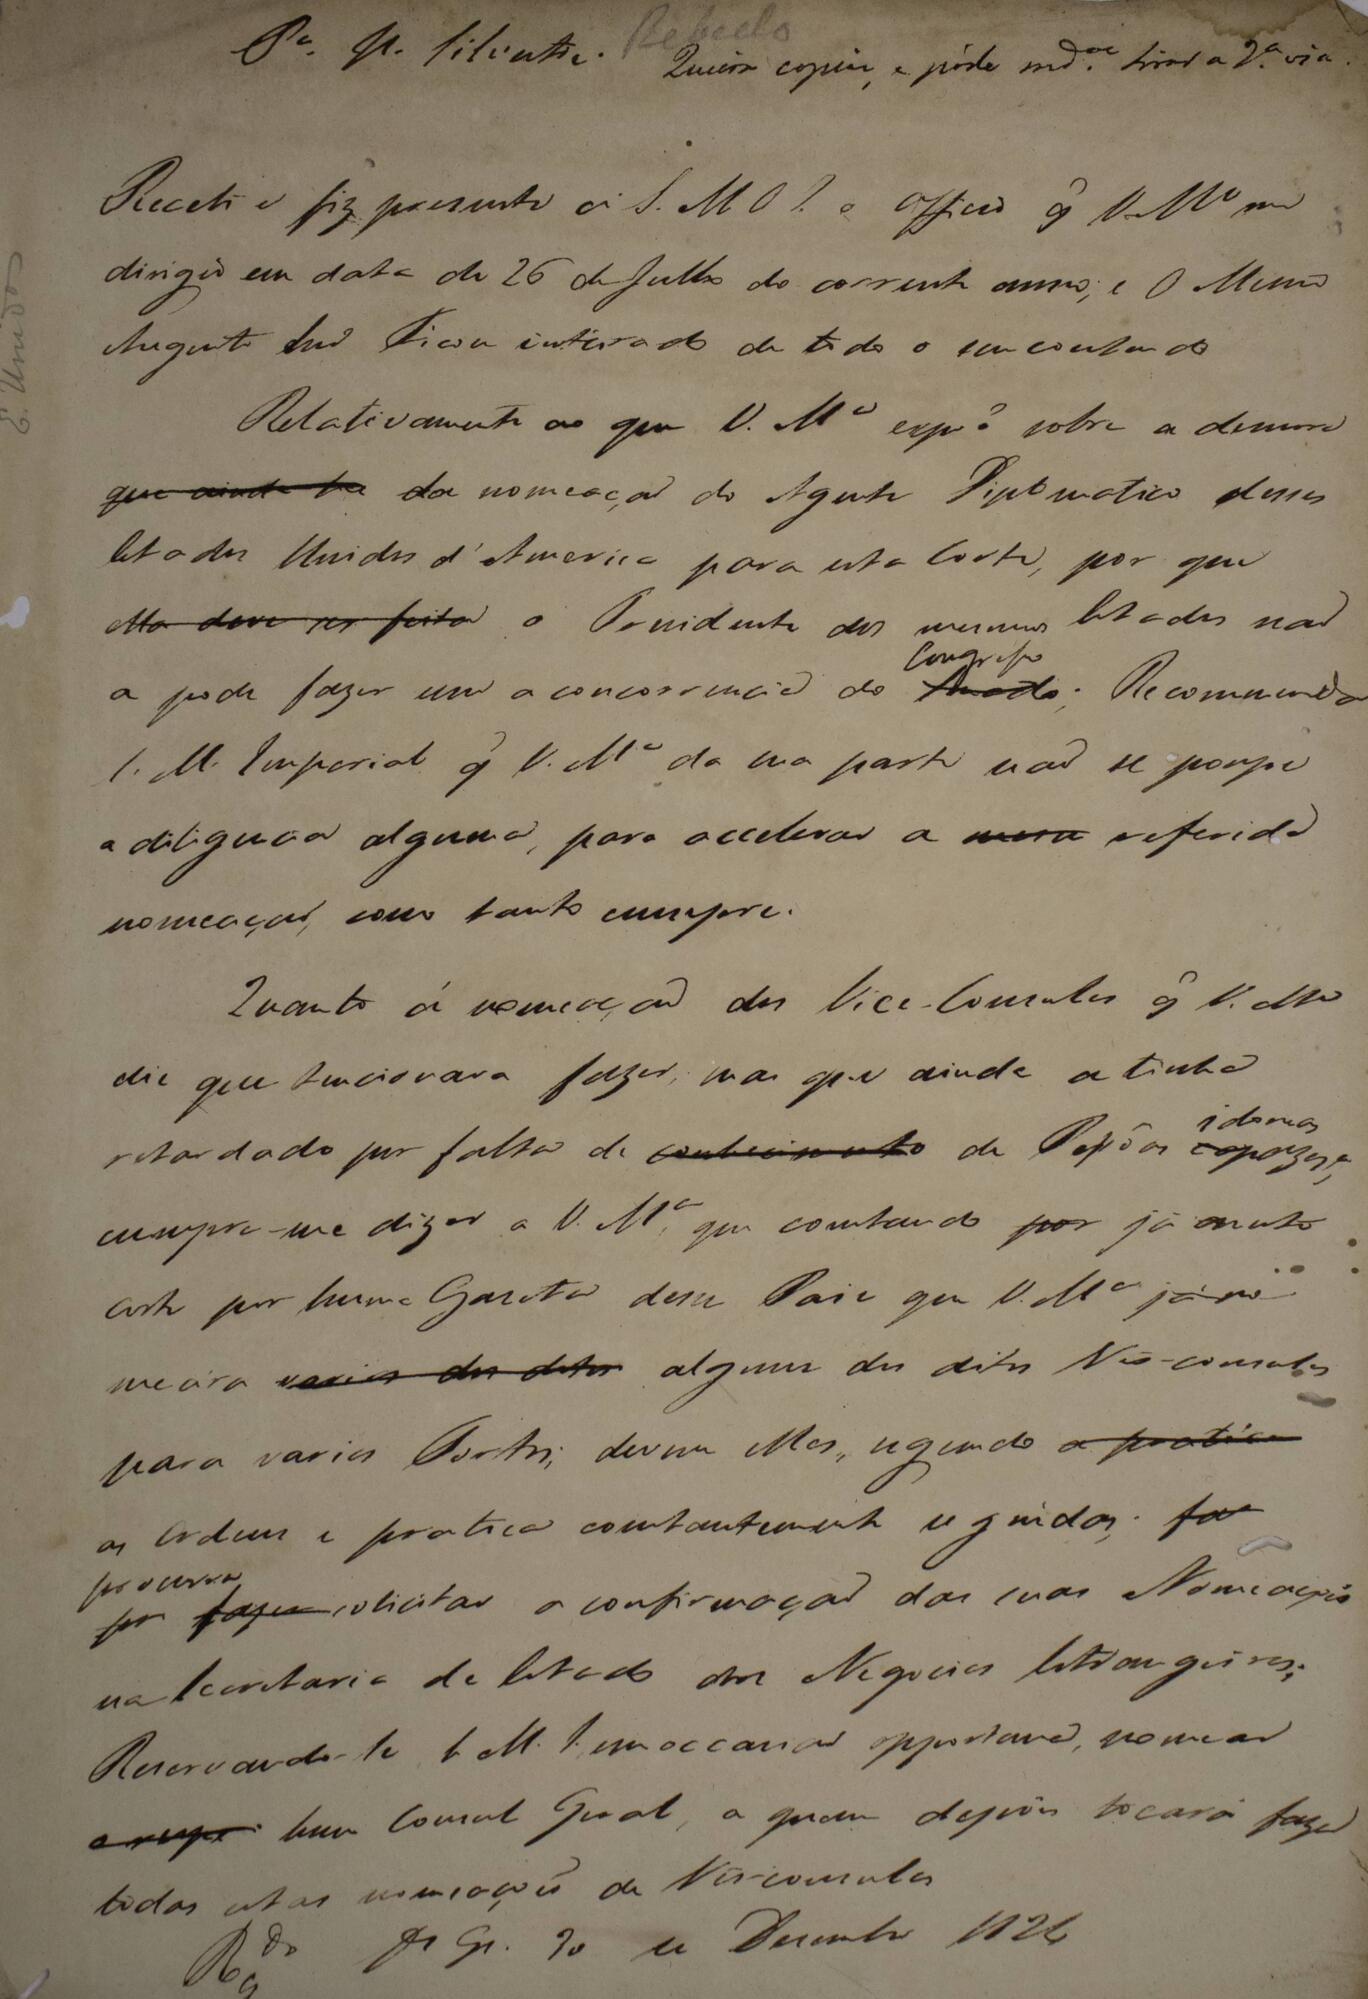 Pª. J. Silvestre. Rebello
Queira copiar, e póde md.ar tirar a 2.ª via.
E. Unidos
Recebi e fiz presente á S. M. O I. o officio q̃ V. M.ce me
dirigio em data de 26 de Julho do corrente anno; e O Mesmo
Augusto Snr Ficou inteirado de todo o seu contendo
Relativamente ao que V. M.ce expõe sobre a demora
que ainda ha da nomeaçaõ do Agente Diplomatico desses
Estados Unidos d'America para esta Corte, por que
ella deve ser feita o Presidente dos mesmos Estados naõ
a pode fazer sem a concorrencia do Senado Congresso; Recommenda
S. M. Imperial q̃ V. M.ce da sua parte naõ se poupe
a diligencia alguma, para accelerar a mesma referida
nomeaçaõ, como tanto cumpre.
Quanto á nomeaçaõ dos Vice-Consules q̃ V. M.ce
diz que tencionava fazer, mas que ainda a tinha
retardado por falta de conhecimento de Pessôas capazes idoneas,
cumpre-me dizer a V. M.ce que constando por já nesta
Corte por huma Gazeta desse Paiz que V. M.ce já no
meára varios dos ditos alguns dos ditos Vice-consules
para varios Portos, devem elles, segundo a pratica
as Ordens e pratica constantemente seguidas, fa
por fazer procurar solicitar a confirmaçaõ das suas Nomeações
na Secretaria de Estado dos Negocios Estrangeiros;
Reservando-Se S. M. I. em occasiaõ opportuna, nomear
hum Consul Geral, a quem depois tocará fazer
todas estas nomeações de Vice-consules
Ds Ge. 20 de Dezembro 1824
Regdo